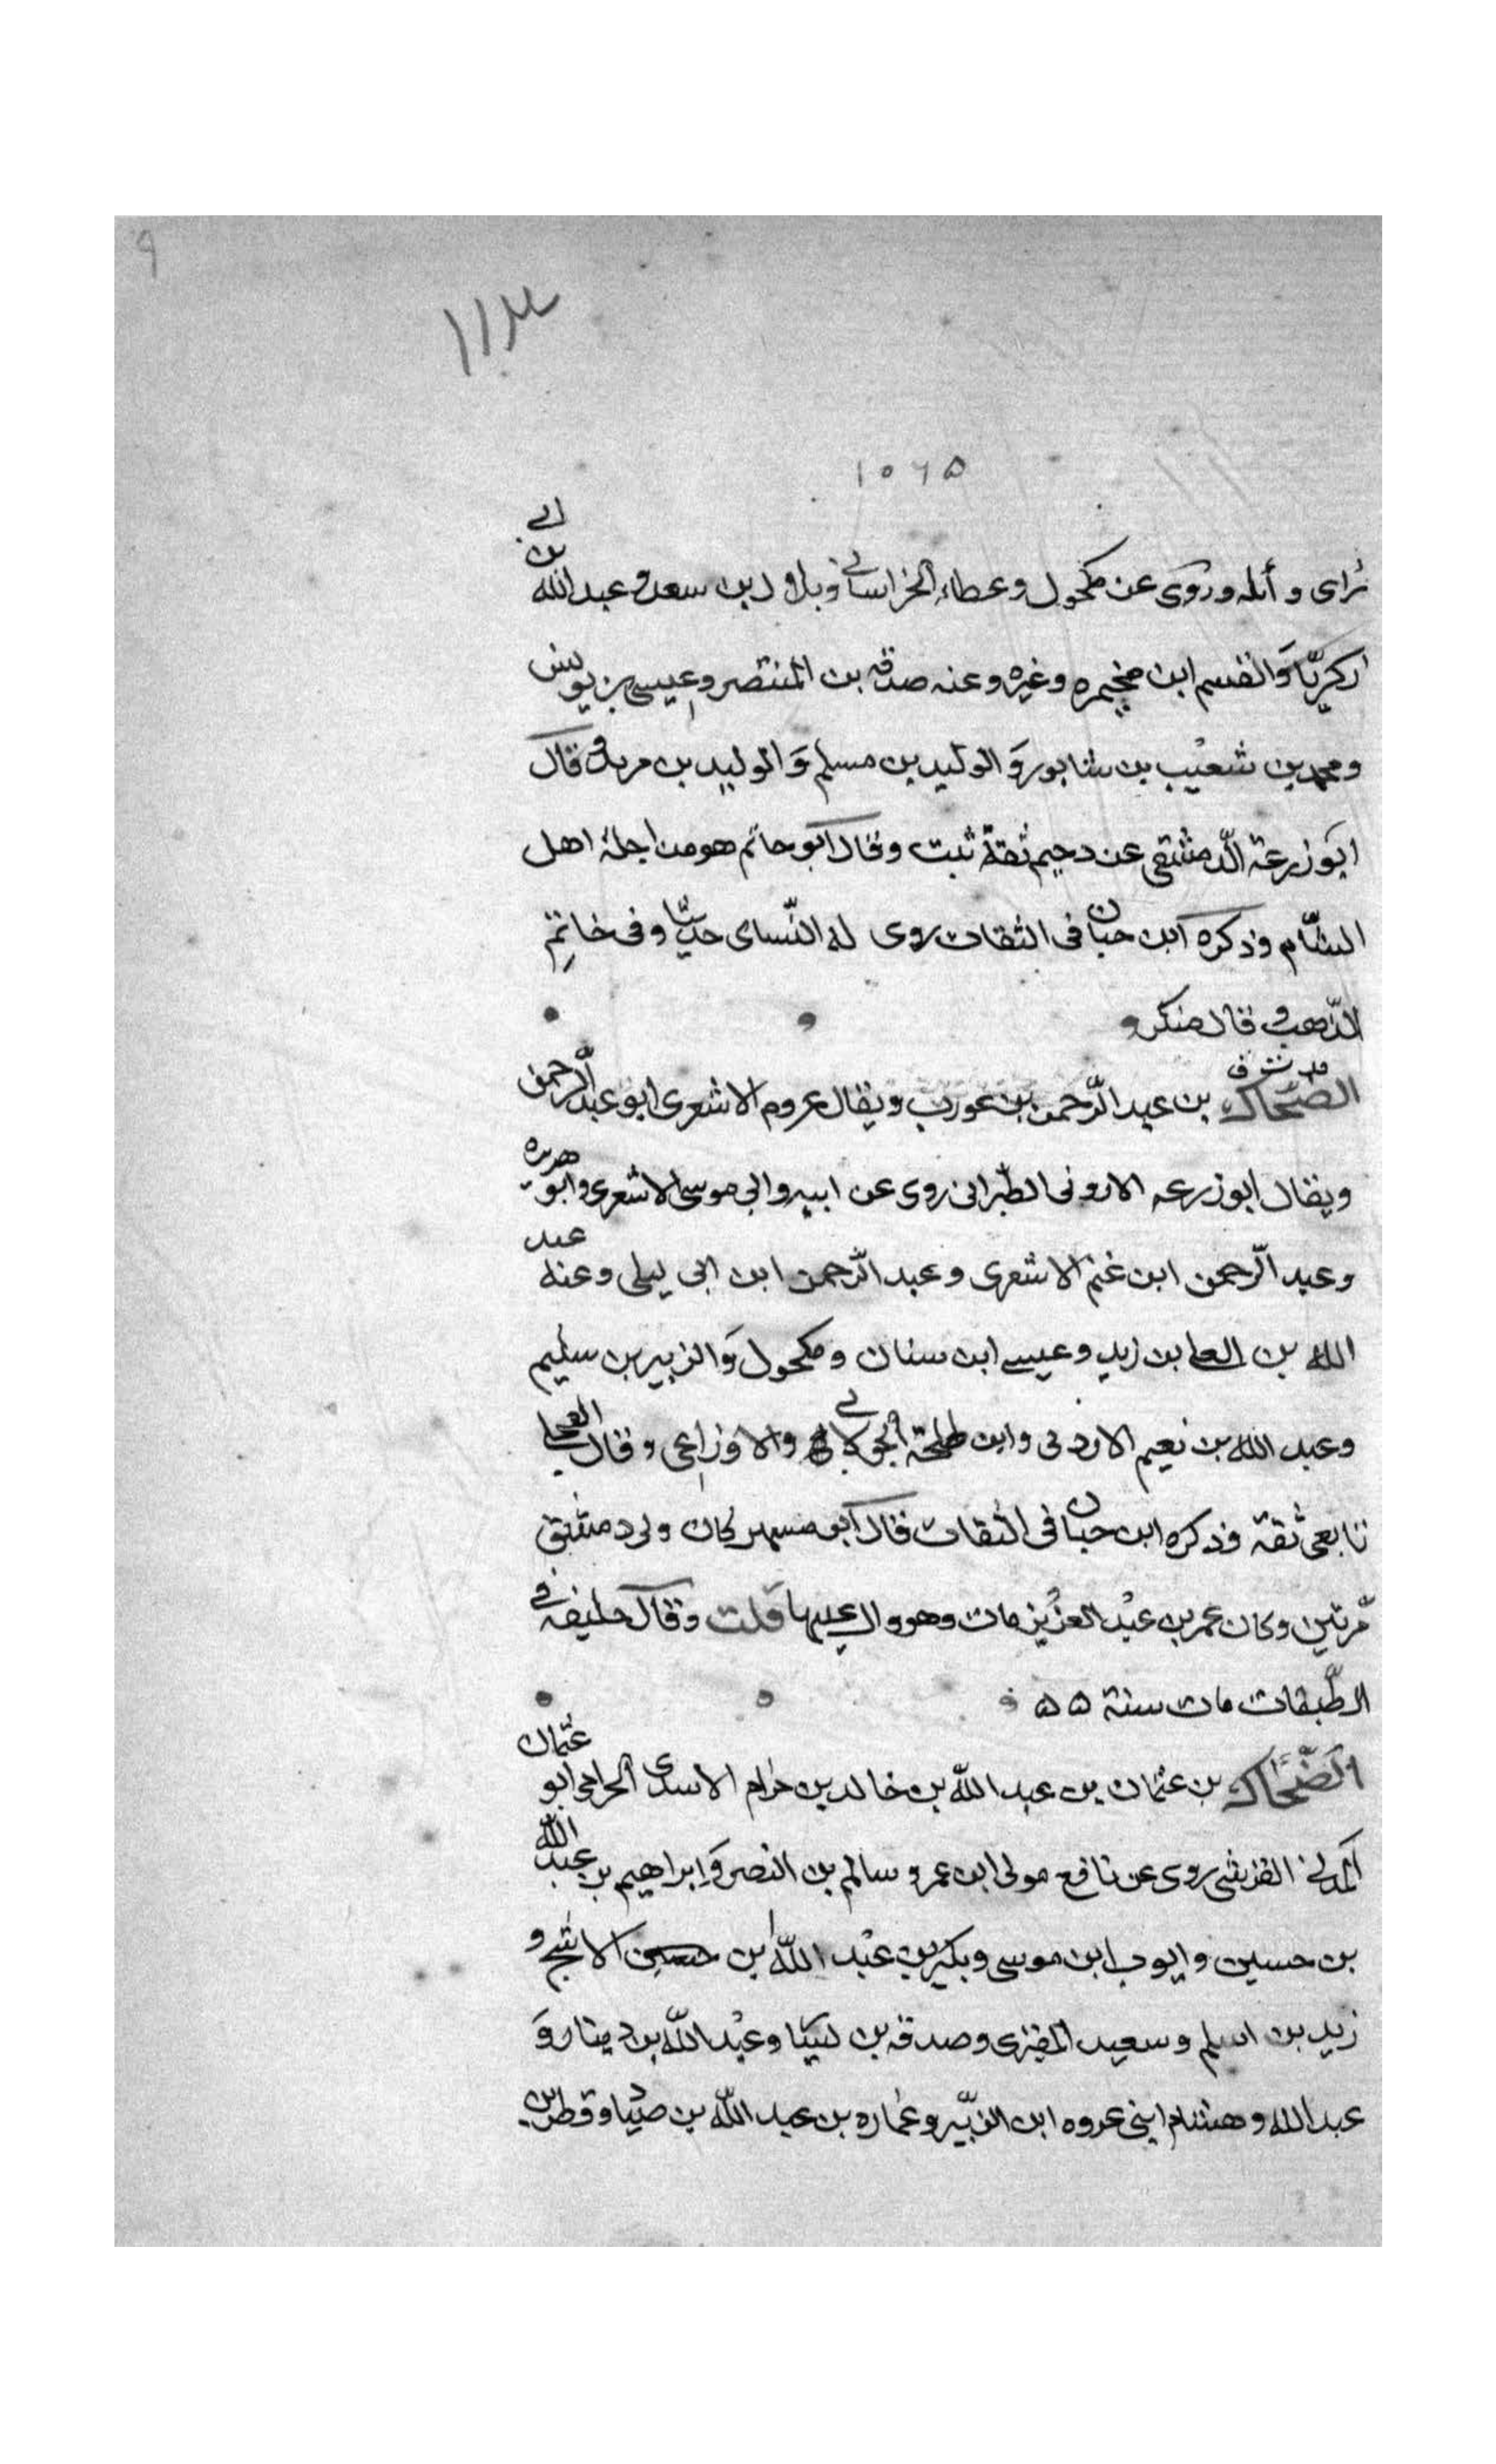 ٩
١١٣
١٠٦٥
رأى وأىله وروى عن مكحول وعطاء الخراسانے وبلال بن سعد وعبدالله بن ابے
زكريّا وَالقسم ابن مخيمره وغيره وعنه صدقه بن المنتصر وعيسى بن يونس
ومحمد بن شعيْب بن شابور وَالوليد بن مسلم وَالوليد بن مريد قال
ابو زرعة الّدمشقى عن دحيم ثقة ثبت وقال ابو حاتم هو من اجلة اهل
الشّام وذكره ابن حبان فى الثقات روى له النّساى حديثا وفى خاتم
الذّهب قال منكر و
مد ت ق
الضّحّاك بن عبد الّرحمن بن عورب ويقال عروم الاشعرى ابو عبد الّرحمن
ويقال ابو زرعه الاردنى الطّبرانى روى عن ابيه وابى موسى الاشعرى وابو هريره
وعبد الّرحمن ابن غنم الاشعرى وعبد الّرحمن ابن ابى ليلى وعنه عبد
الله بن العلا بن زيد وعيسے ابن سنان ومكحول وَالزبير بن سليم
وعبد الله بن نعيم الاردنى وابن طلحة الخولانے والاوزاعى وقال العجلے
تابعى ثقة وذكره ابن حبان فى الثقات قال ابو مسهر كان ولى دمشق
مّرتين وكان عمر بن عبْد العزيز مات وهو وال عليها قلت وقال خليفه فے
الطّبقات مات سنة ۵۵
الَضّحّاك بن عثمان بن عبد اللّه بن خالد بن حزام الاسدى الحرامى ابو عثمان
المدنے القرشى روى عن نافع مولى ابن عمر وسالم بن النصر وَإبراهيم بن عبد الله
بن حسين وايوب ابن موسى وبكير بن عبْد اللّه ابن الاشج و
زيد بن اسلم وسعيد المقبرى وصدقه بن يسار وعبْد اللّه بن دينار وَ
عبد الله وهشام ابنى عروه ابن الزّبير وعماره بن عبد اللّه بن صيّاد وقطن بن